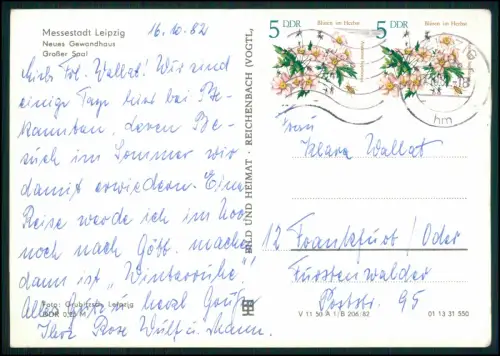 Messestadt Leipzig
Neues Gewandhaus
Großer Saal
16.10.82
Lieb. Frl. Wallat! Wir sind
einige Tage hier bei Be-
kannten, deren Be-
such im Sommer wir
damit erwiedern. Eine
Reise werde ich im Nov.
noch nach Gött. machen
dann ist „Winterruhe"!
Alles herzl. Grüße
Ihre Rose Wulf u. Mann.
Foto: Leipzig
DDR
BILD UND HEIMAT · REICHENBACH (VOGTL)
5 DDR Blüten im Herbst
5 DDR Blüten im Herbst
hm
Frau
Klara Wallat
12 Frankfurt / Oder
Fürstenwalder
Poststr. 95
V 11 50 A 1 B 206/82
01 13 31 550